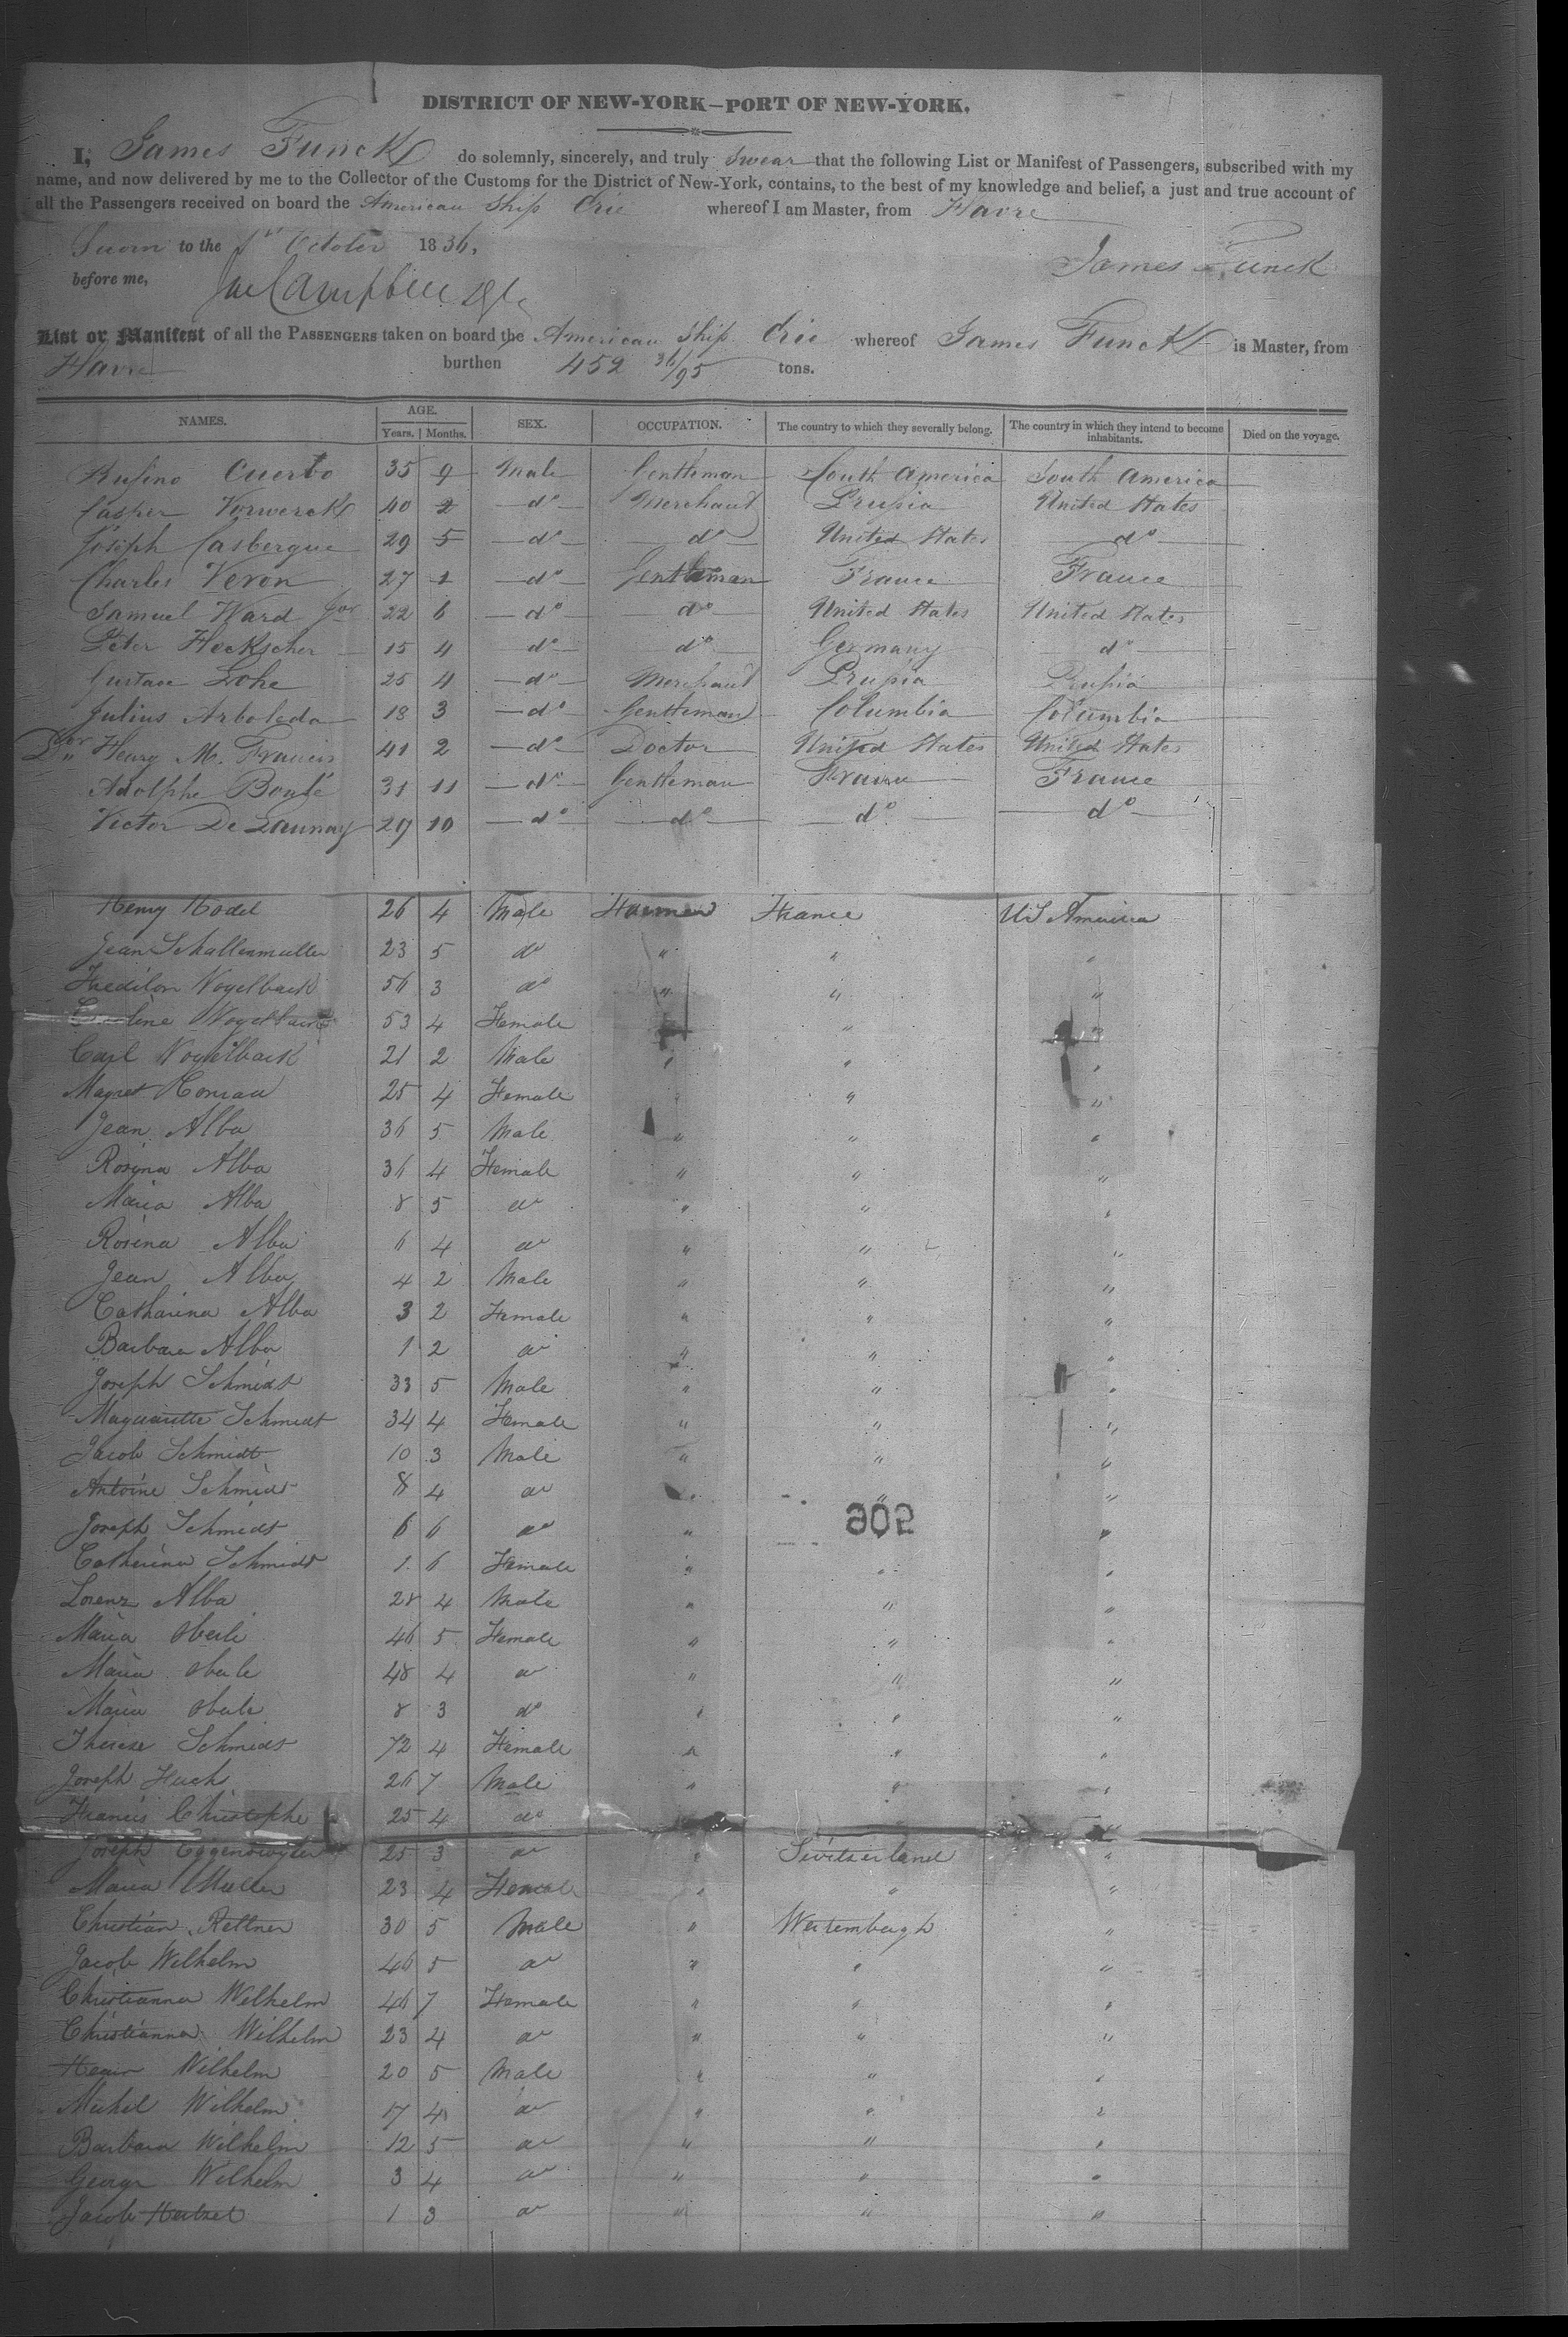 DISTRICT OF NEW-YORK—PORT OF NEW-YORK.
I, James Funck do solemnly, sincerely, and truly swear that the following List or Manifest of Passengers, subscribed with my
name, and now delivered by me to the Collector of the Customs for the District of New-York, contains, to the best of my knowledge and belief, a just and true account of
all the Passengers received on board the American Ship Erie whereof I am Master, from Havre
Sworn to the 1st October 1836,
James Funck
before me,
Campbell
List or Manifest of all the PASSENGERS taken on board the American Ship Erie whereof James Funck is Master, from
Havre burthen 452 36/95 tons.
NAMES. AGE. Years. Months. SEX. OCCUPATION. The country to which they severally belong. The country in which they intend to become inhabitants. Died on the voyage.
Rufino Cuerbo 35 9 Male Gentleman South America South America
Casper Vorwerck 40 2 do Merchant Prussia United States
Joseph Casbergue 29 5 do do United States do
Charles Veron 27 2 do Gentleman France France
Samuel Ward Jor 22 6 do do United States United States
Peter Heckscher 15 4 do do Germany do
Gustave Lohe 25 4 do Merchant Prussia Prussia
Julius Arboleda 18 3 do Gentleman Columbia Columbia
Dor Henry M. Francis 41 2 do Doctor United States United States
Adolphe Boulé 31 11 do Gentleman France France
Victor De Launay 29 10 do do do do
Henry Hodel 26 4 Male Farmer France US America
Jean Schallenmuller 23 5 do " " "
Fredilon Vogelback 56 3 do " " "
Vogelback 53 4 Female " "
Carl Vogelback 21 2 Male " " "
Magret Conrau 25 4 Female " "
Jean Alba 36 5 Male " " "
Rosina Alba 36 4 Female " " "
Maria Alba 8 5 do " " "
Rosina Alba 6 4 do " " "
Jean Alba 4 2 Male " " "
Catharina Alba 3 2 Female " " "
Barbara Alba 1 2 do " " "
Joseph Schmidt 33 5 Male " " "
Marguaritte Schmidt 34 4 Female " " "
Jacob Schmidt 10 3 Male " " "
Antoine Schmidt 8 4 do " " "
906
Joseph Schmidt 6 6 do " "
Catherina Schmidt 1 6 Female " " "
Lorenz Alba 28 4 Male " " "
Maria Oberle 46 5 Female " " "
Maria Oberle 48 4 do " " "
Maria Oberle 8 3 do " " "
Therese Schmidt 72 4 Female " " "
Joseph Huck 26 7 Male " " "
Francis Christophe 25 4 do "
Joseph 25 3 do " Switzerland "
Maria Muller 23 4 Female " " "
Christian Kettner 30 5 Male " Wertembergh "
Jacob Wilhelm 46 5 do " " "
Christianna Wilhelm 46 7 Female " " "
Christianna Wilhelm 23 4 do " " "
Henir Wilhelm 20 5 Male " " "
Michel Wilhelm 17 4 do " " "
Barbara Wilhelm 12 5 do " " "
George Wilhelm 3 4 do " " "
Jacob Hertzel 1 3 do " " "